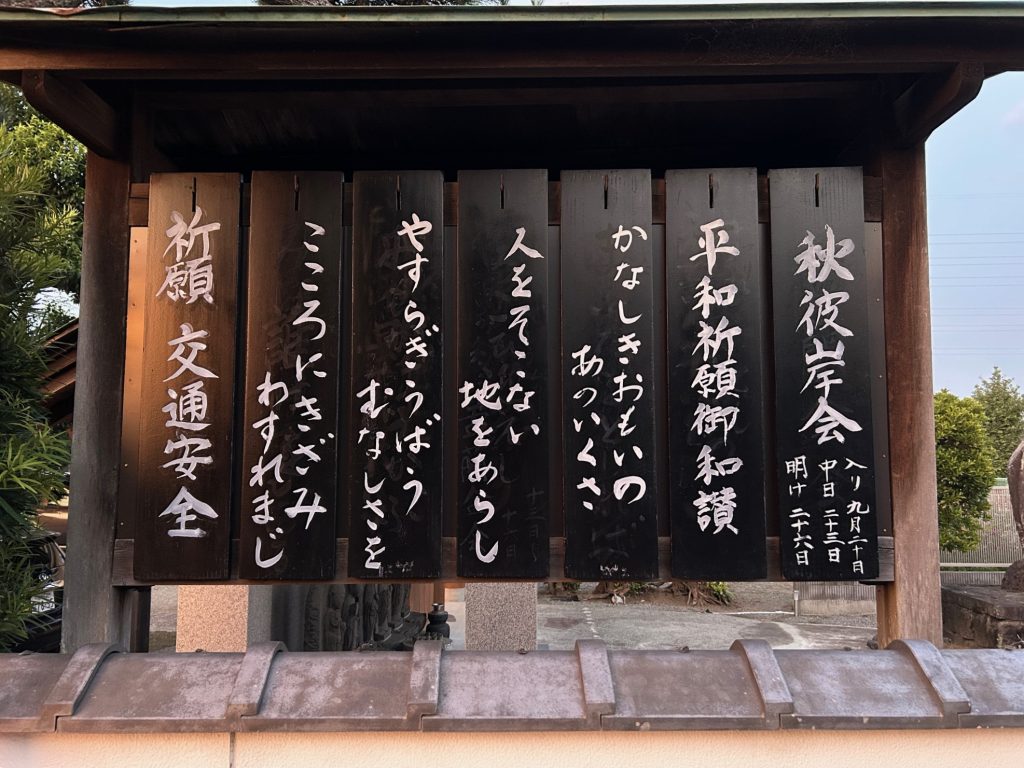 秋彼岸会
入り 九月二十日
中日 二十三日
明け 二十六日
平和祈願御和讃
かなしきおもいの
あのいくさ
人をそこない
地をあらし
やすらぎうばう
むなしさを
こころにきざみ
わすれまじ
祈願 交通安全